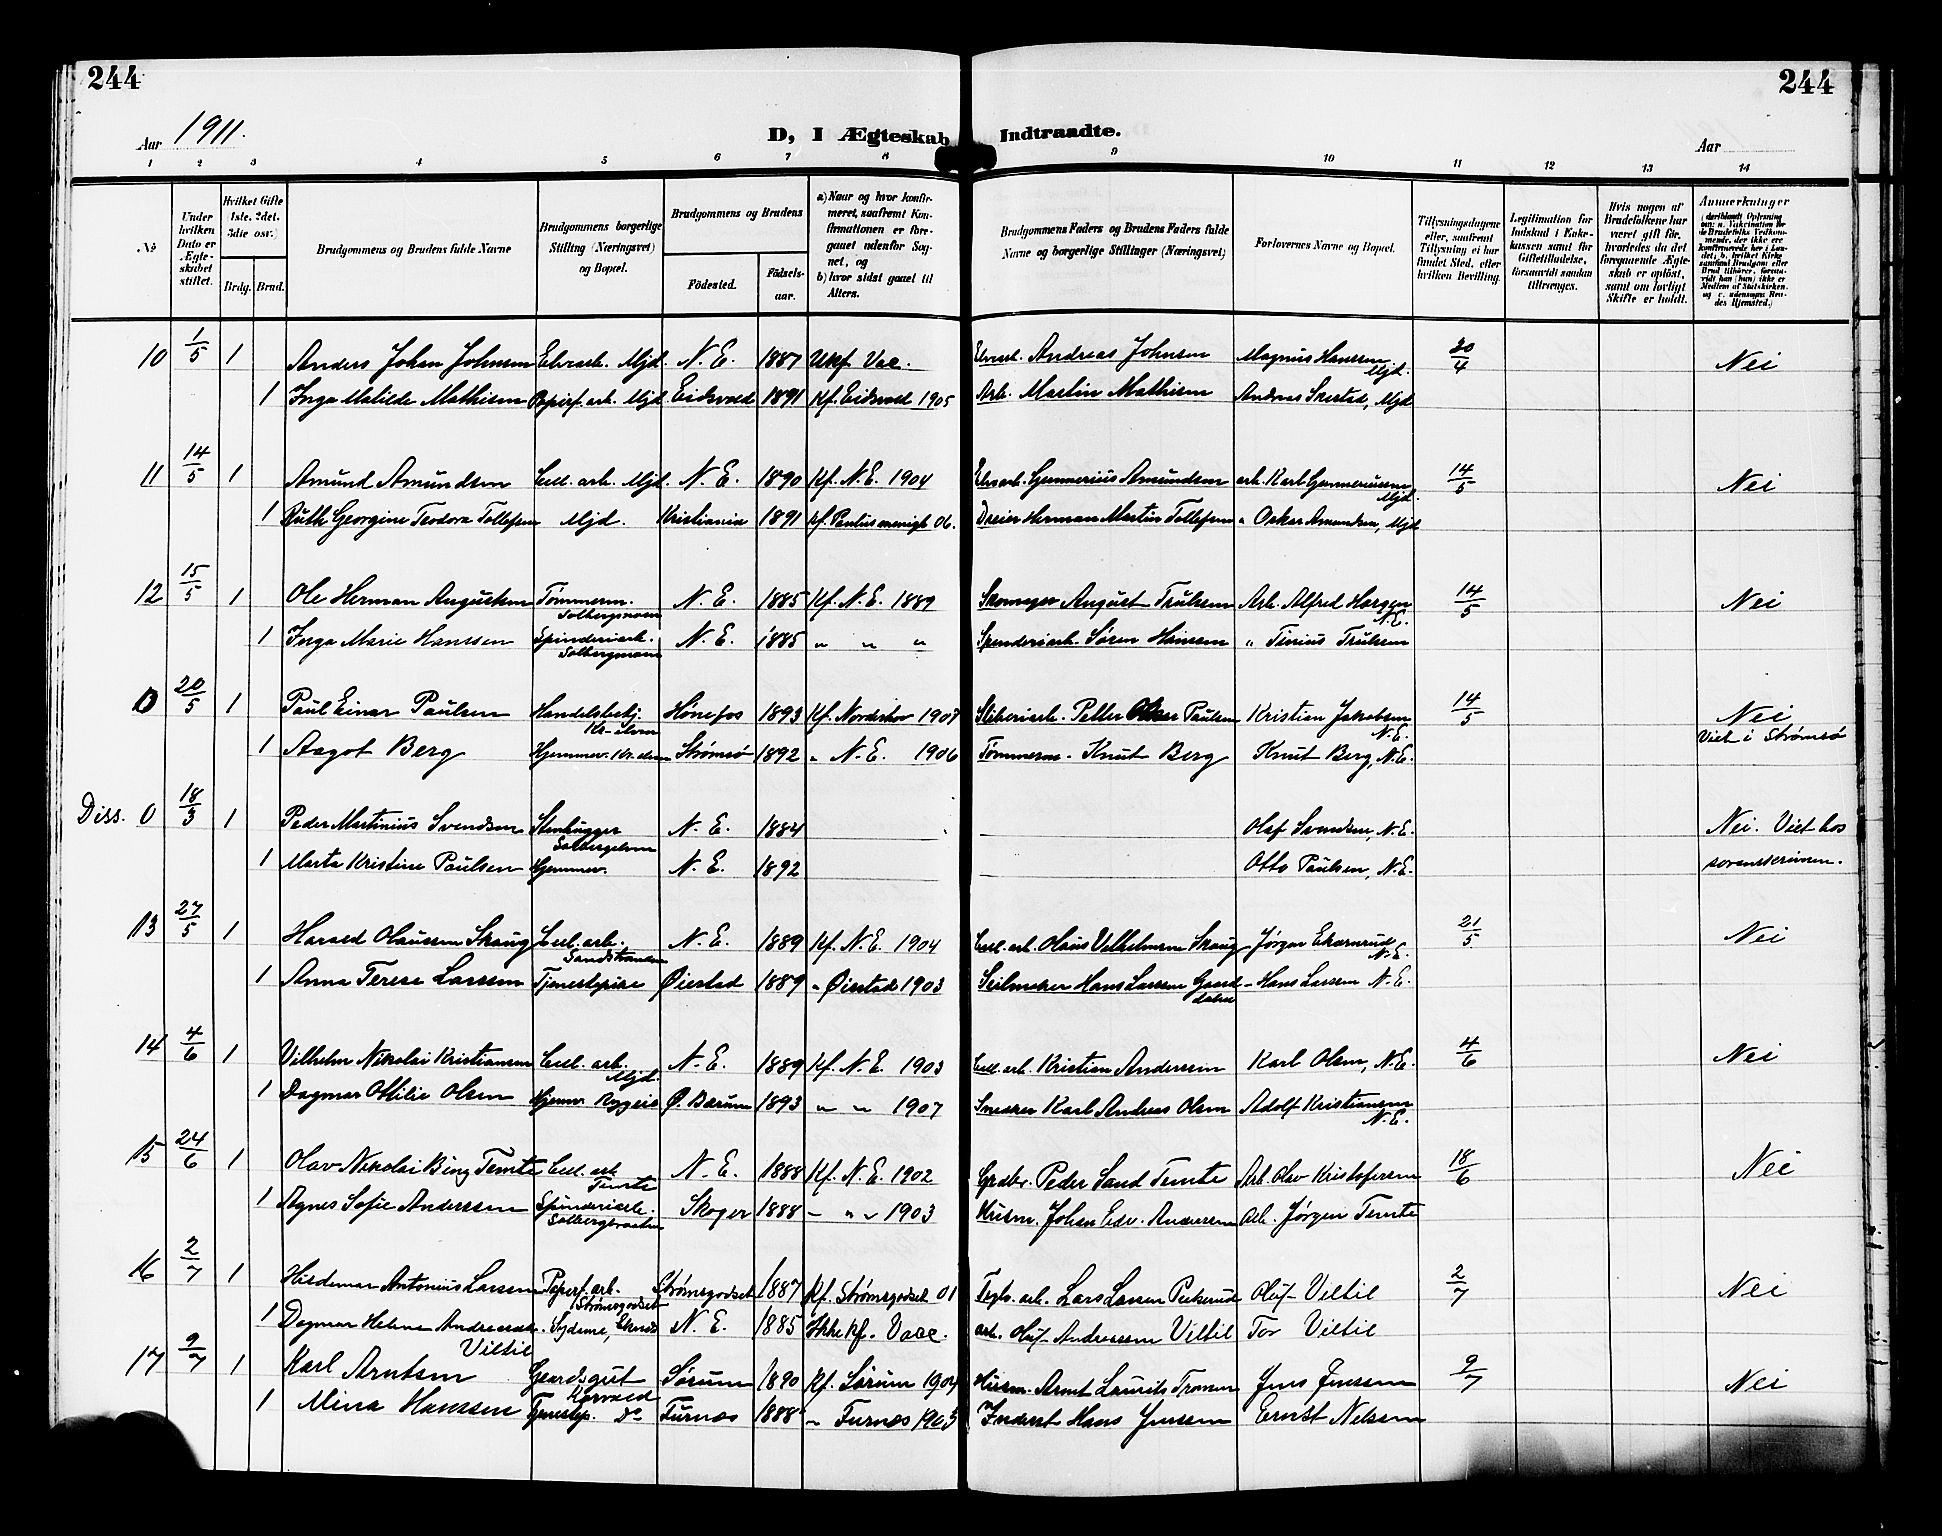 244
244
Aar 1911.
D, I Ægteskab Indtraadte.
Aar
1 2 3 4 5 6 7 8 9 10 11 12 13 14
No
Under hvilken Dato er Ægteskabet stiftet.
Hvilket Gifte (1ste, 2det, 3die osv.)
Brdg. Brud.
Brudgommens og Brudens fulde Navne
Brudgommens borgerlige Stilling (Næringsvei) og Bopæl.
Brudgommens og Brudens
Fødested.
Fødselsaar.
a) Naar og hvor konfirmeret, saafremt Konfirmationen er foregaaet udenfor Sognet, og
b) hvor sidst gaaet til Alters.
Brudgommens Faders og Brudens Faders fulde Navne og borgerlige Stillinger (Næringsvei)
Forlovernes Navne og Bopæl.
Tillysningsdagene eller, saafremt Tillysning ei har fundet Sted, efter hvilken Bevilling.
Legitimation for Indskud i Enkekassen samt for Giftetilladelse, forsaavidt saadan tiltrænges.
Hvis nogen af Brudefolkene har været gift før, hvorledes da det foregaaende Ægteskab er opløst, samt om lovligt Skifte er holdt.
Anmerkninger
10 1/5 1 Anders Johan Johnsen Elvearb. Mjd. N. E. 1887 Ukf. Vac. Elvearb. Andreas Johnsen Magnus Hanssen Mjd. 30/4 Nei
1 Inga Matilde Mathisen Papirf. arb. Mjd Eidsvold 1891 Kf. Eidsvold 1905 Arb. Martin Mathisen Andreas Skistad, Mjd
11 14/5 1 Amund Amundsen Cell. arb. Mjd. N. E. 1890 Kf. N. E. 1904 Elvearb. Gunnerius Amundsen arb. Karl Gunneriussen Mjd. 14/5 Nei
1 Ruth Georgine Teodora Tollefsen Mjd. Kristiania 1891 Kf. Paulus menigh 06. Dreier Herman Martin Tollefsen " Oskar Amundsen, Mjd
12 15/5 1 Ole Herman Augustsen Tømmerm. Solbergmoen N. E. 1885 Kf. N. E. 1889 Skomager August Trulsen Arb. Alfred Horgen N. E. 14/5 Nei
1 Inga Marie Hanssen Spinderiarb. Solbergmoen N. E. 1885 " " " Spinderiarb. Søren Hanssen " Tinius Trulsen
0 20/5 1 Paul Einar Paulsen Handelsbetj. Kr-elven Hønefos 1893 Kf. Norderhov 1907 Sliberiarb. Petter Oskar Paulsen Kristian Jakobsen N. E. 14/5 Nei
1 Aagot Berg Hjemmev. Kr. elven Strømsø 1892 " N. E. 1906 Tømmerm. Knut Berg Knut Berg, N. E. Viet i Strømsø
Diss. 0 18/3 1 Peder Martinius Svendsen Stenhugger Solbergelven N. E. 1884 Olaf Svendsen, N. E. Nei. Viet hos
1 Marta Kristine Paulsen Hjemmev. N. E. 1892 Otto Paulsen, N. E. sorenskriveren.
13 27/5 1 Harald Olaussen Skaug Cell. arb. Sandstranden N. E. 1889 Kf. N. E. 1904 Cell. arb. Olaus Vilhelmsen Skaug Jørgen Ekornrud N. E. 21/5 Nei
1 Anna Terese Larssen Tjenestepike Øiestad 1889 " Øiestad 1903 Seilmaker Hans Larssen Hans Larssen N. E.
14 4/6 1 Vilhelm Nikolai Kristiansen Cell. arb. Mjd. N. E. 1889 Kf. N. E. 1903 Cell. arb. Kristian Anderssen Karl Olsen, N. E. 4/6 Nei
1 Dagmar Ottilie Olsen Hjemmev. Ryggeis Ø. Bærum 1893 " " 1907 Snedker Karl Andreas Olsen Adolf Kristiansen N. E.
15 24/6 1 Olav Nikolai Bing Temte Cell. arb. Temte N. E. 1888 Kf. N. E. 1902 Grdbr. Peder Sand Temte Arb. Olav Kristofersen 18/6 Nei
1 Agnes Sofie Anderssen Spinderiarb. Solbergbraaten Skoger 1888 " " " 1903 Husm. Johan Edv. Anderssen Arb. Jørgen Temte
16 2/7 1 Hildemar Antonius Larssen Papirf. arb. Strømsgodset Strømsgodset 1887 Kf. Strømsgodset 01 Teglv. arb. Lars Larsen Oluf Viltil 2/7 Nei
1 Dagmar Helene Viltil Syderne, N. E. 1885 Ikke kf. Vacc. arb. Oluf Anderssen Viltil Tor Viltil
17 9/7 1 Karl Arntsen Gaardsgut Sørum 1890 Kf. Sørum 1904 Husm. Arnt Laurits Jens Jenssen 9/7 Nei
1 Mina Hanssen Tjenestep. Do Furnes 1888 " Furnes 1903 Inderst Hans Jenssen Ernst Nelssen